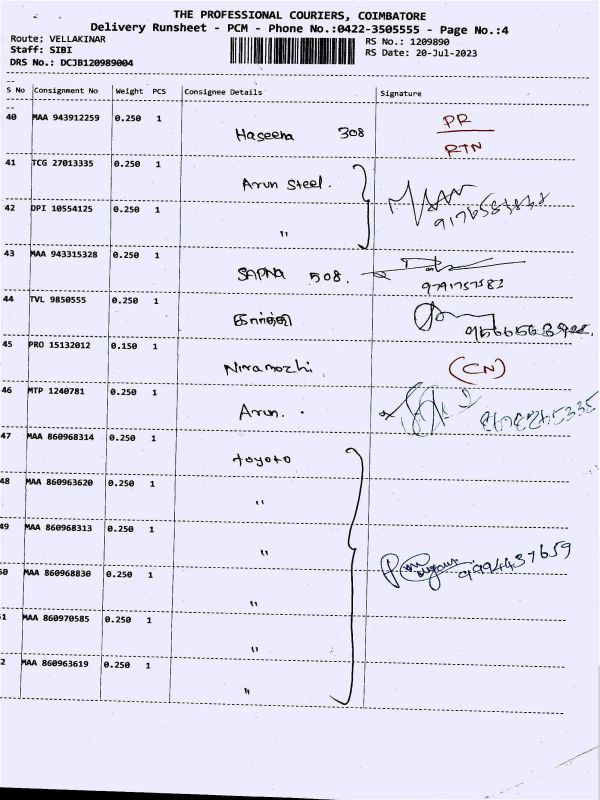 THE PROFESSIONAL COURIERS, COIMBATORE
Delivery Runsheet - PCM - Phone No.:0422-3505555 - Page No.:4
Route; VELLAKINAR RS No.: 1209890
Staff: SIBI RS Date: 20-Jul-2023
DRS No.: DCJB120989004
S No Consignment No Weight PCS Consignee Details Signature
40 MAA 943912259 0.250 1 Haseena 308 PR
RTN
41 TCG 27013335 0.250 1 Arun Steel.
42 DPI 10554125 0.250 1 "
43 MAA 943315328 0.250 1 SAPNA 508.
9791757582
44 TVL 9850555 0.250 1 கார்த்தி
45 PRO 15132012 0.150 1 Niramozhi (CN)
46 MTP 1240781 0.250 1 Arun.
47 MAA 860968314 0.250 1 toyoto
48 MAA 860963620 0.250 1 "
49 MAA 860968313 0.250 1 " 9994437659
50 MAA 860968830 0.250 1 "
51 MAA 860970585 0.250 1 "
52 MAA 860963619 0.250 1 "